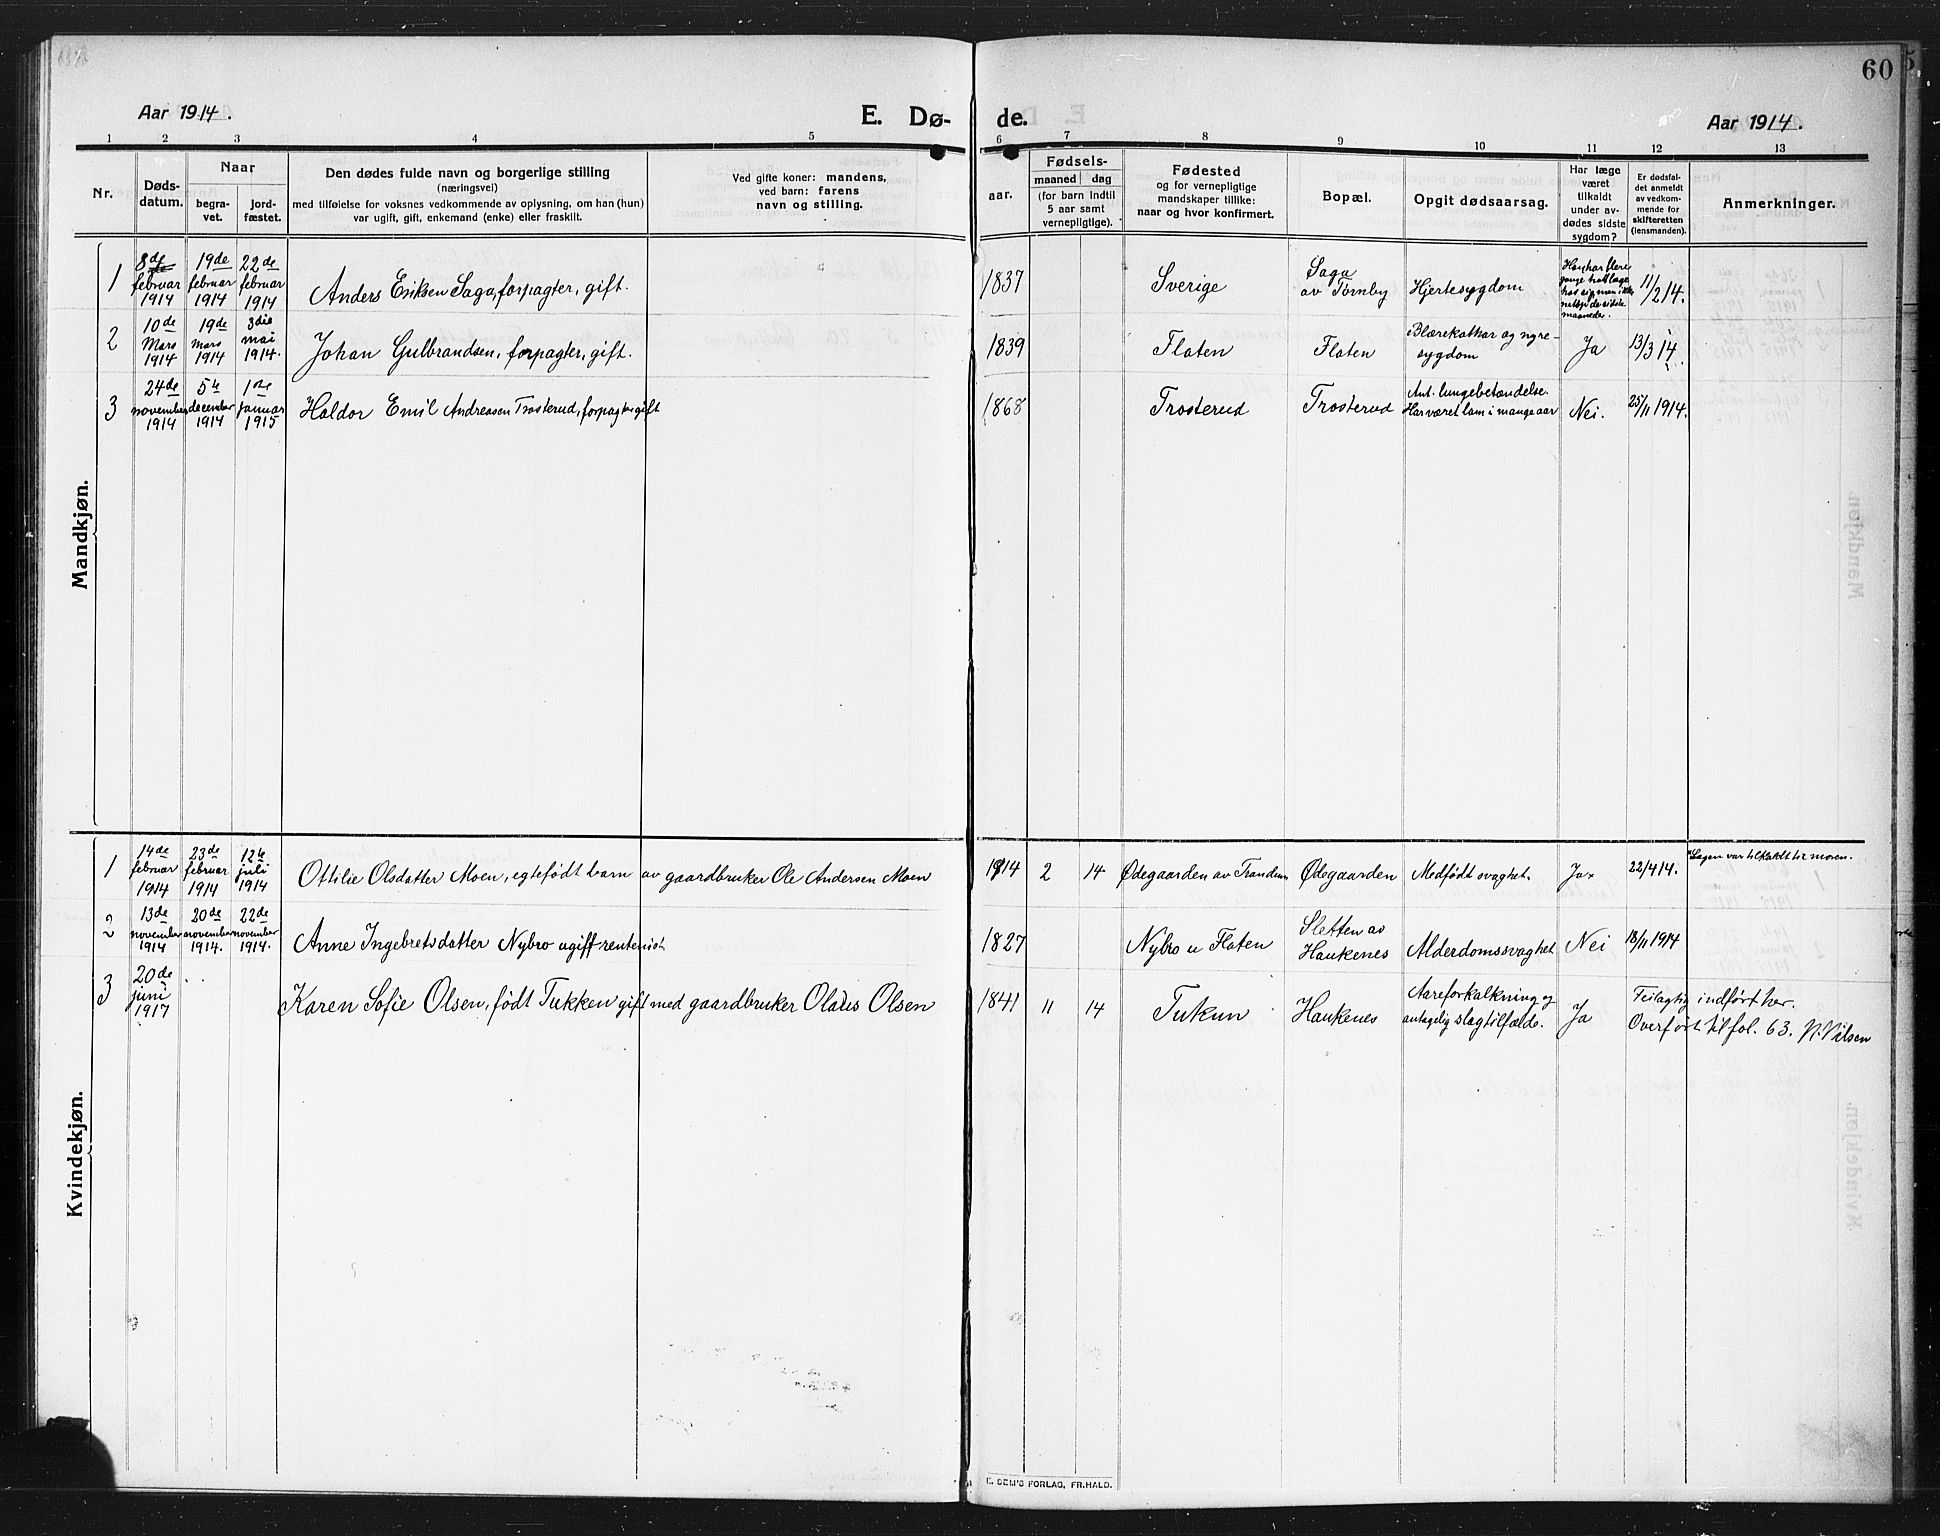 60
Aar 1914.
E. Dø-
de.
Aar 1914.
1 2 3 4 5 6 7 8 9 10 11 12 13
Nr.
Døds-
datum.
Naar
begra-
vet.
jord-
fæstet.
Den dødes fulde navn og borgerlige stilling
(næringsvei)
med tilføielse for voksnes vedkommende av oplysning, om han (hun)
var ugift, gift, enkemand (enke) eller fraskilt.
Ved gifte koner: mandens,
ved barn: farens
navn og stilling.
aar.
Fødsels-
maaned dag
(for barn indtil
5 aar samt
vernepligtige).
Fødested
og for vernepligtige
mandskaper tillike:
naar og hvor konfirmert.
Bopæl.
Opgit dødsaarsag.
Har læge
været
tilkaldt
under av-
dødes sidste
sygdom?
Er dødsfal-
det anmeldt
av vedkom-
mende for
skifteretten
(lensmanden).
Anmerkninger.
Mandkjøn.
1
8de
februar
1914
19de
februar
1914
22de
februar
1914
Anders Eriksen Saga, forpagter, gift.
1837
Sverige
Saga
av Tørnby
Hjertesygdom
Han har flere
gange hat læge
hos sig men ikke
netop de sidste
maaneder.
11/2 14.
2
10de
Mars
1914
19de
mars
1914
3die
mai
1914.
Johan Gulbrandsen, forpagter, gift.
1839
Flaten
Flaten
Blærekathar og nyre-
sygdom
Ja
13/3 14.
3
24de
november
1914
5te
december
1914
1ste
januar
1915
Haldor Emil Andreasen Trosterud, forpagter gift
1868
Trosterud
Trosterud
Ant. lungebetændelse.
Har været lam i mange aar
Nei.
25/11 1914.
Kvindekjøn.
1
14de
februar
1914
23de
februar
1914
12te
juli
1914
Ottilie Olsdatter Moen, egtefødt barn av gaardbruker Ole Andersen Moen
1914 2 14
Ødegaarden av Trandem
Ødegaarden
Medfødt svaghet.
Jax
22/4 14.
xLægen var tilkaldt til moren.
2
13de
november
1914
20de
november
1914.
22de
november
1914.
Anne Ingebretsdatter Nybro ugift rentenist
1827
Nybro u Flaten
Sletten av
Haukenes
Alderdomssvaghet
Nei
18/11 1914
3
20de
juni
1917
Karen Sofie Olsen, født Tukken gift med gaardbruker Olaus Olsen
1841 11 14
Tukun
Haukenes
Aareforkalkning og
antagelig slagtilfælde.
Ja
Feilagtig indført her.
Overført til fol. 63. N. Nilsen
E. SEM'S FORLAG, FR.HALD.